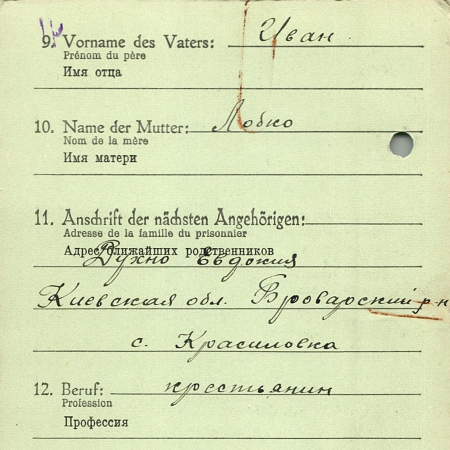 9. Vorname des Vaters: Иван
Prénom du père
Имя отца
10. Name der Mutter: Лобко
Nom de la mère
Имя матери
11. Anschrift der nächsten Angehörigen:
Adresse de la famille du prisonnier
Адрес ближайших родственников
Духно Евдокия
Киевская обл. Броварский р-н
с. Красиловка
12. Beruf: крестьянин
Profession
Профессия